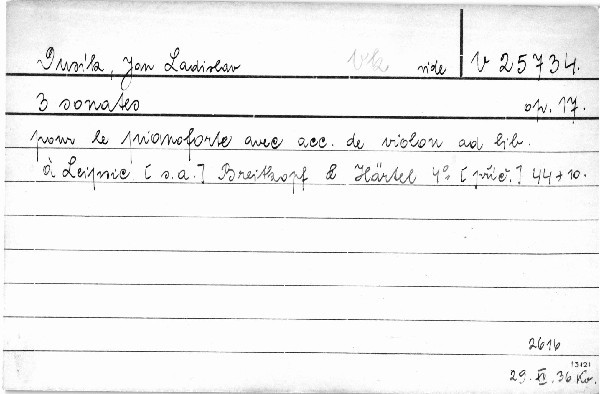 Dusík, Jan Ladislav vk vide V 25734.
3 sonates op. 17.
pour le pianoforte avec acc. de violon ad lib.
à Leipsic [s.a.] Breitkopf & Härtel 4° [příč.] 44+10.
2616
13121
29. XI. 36 Kr.